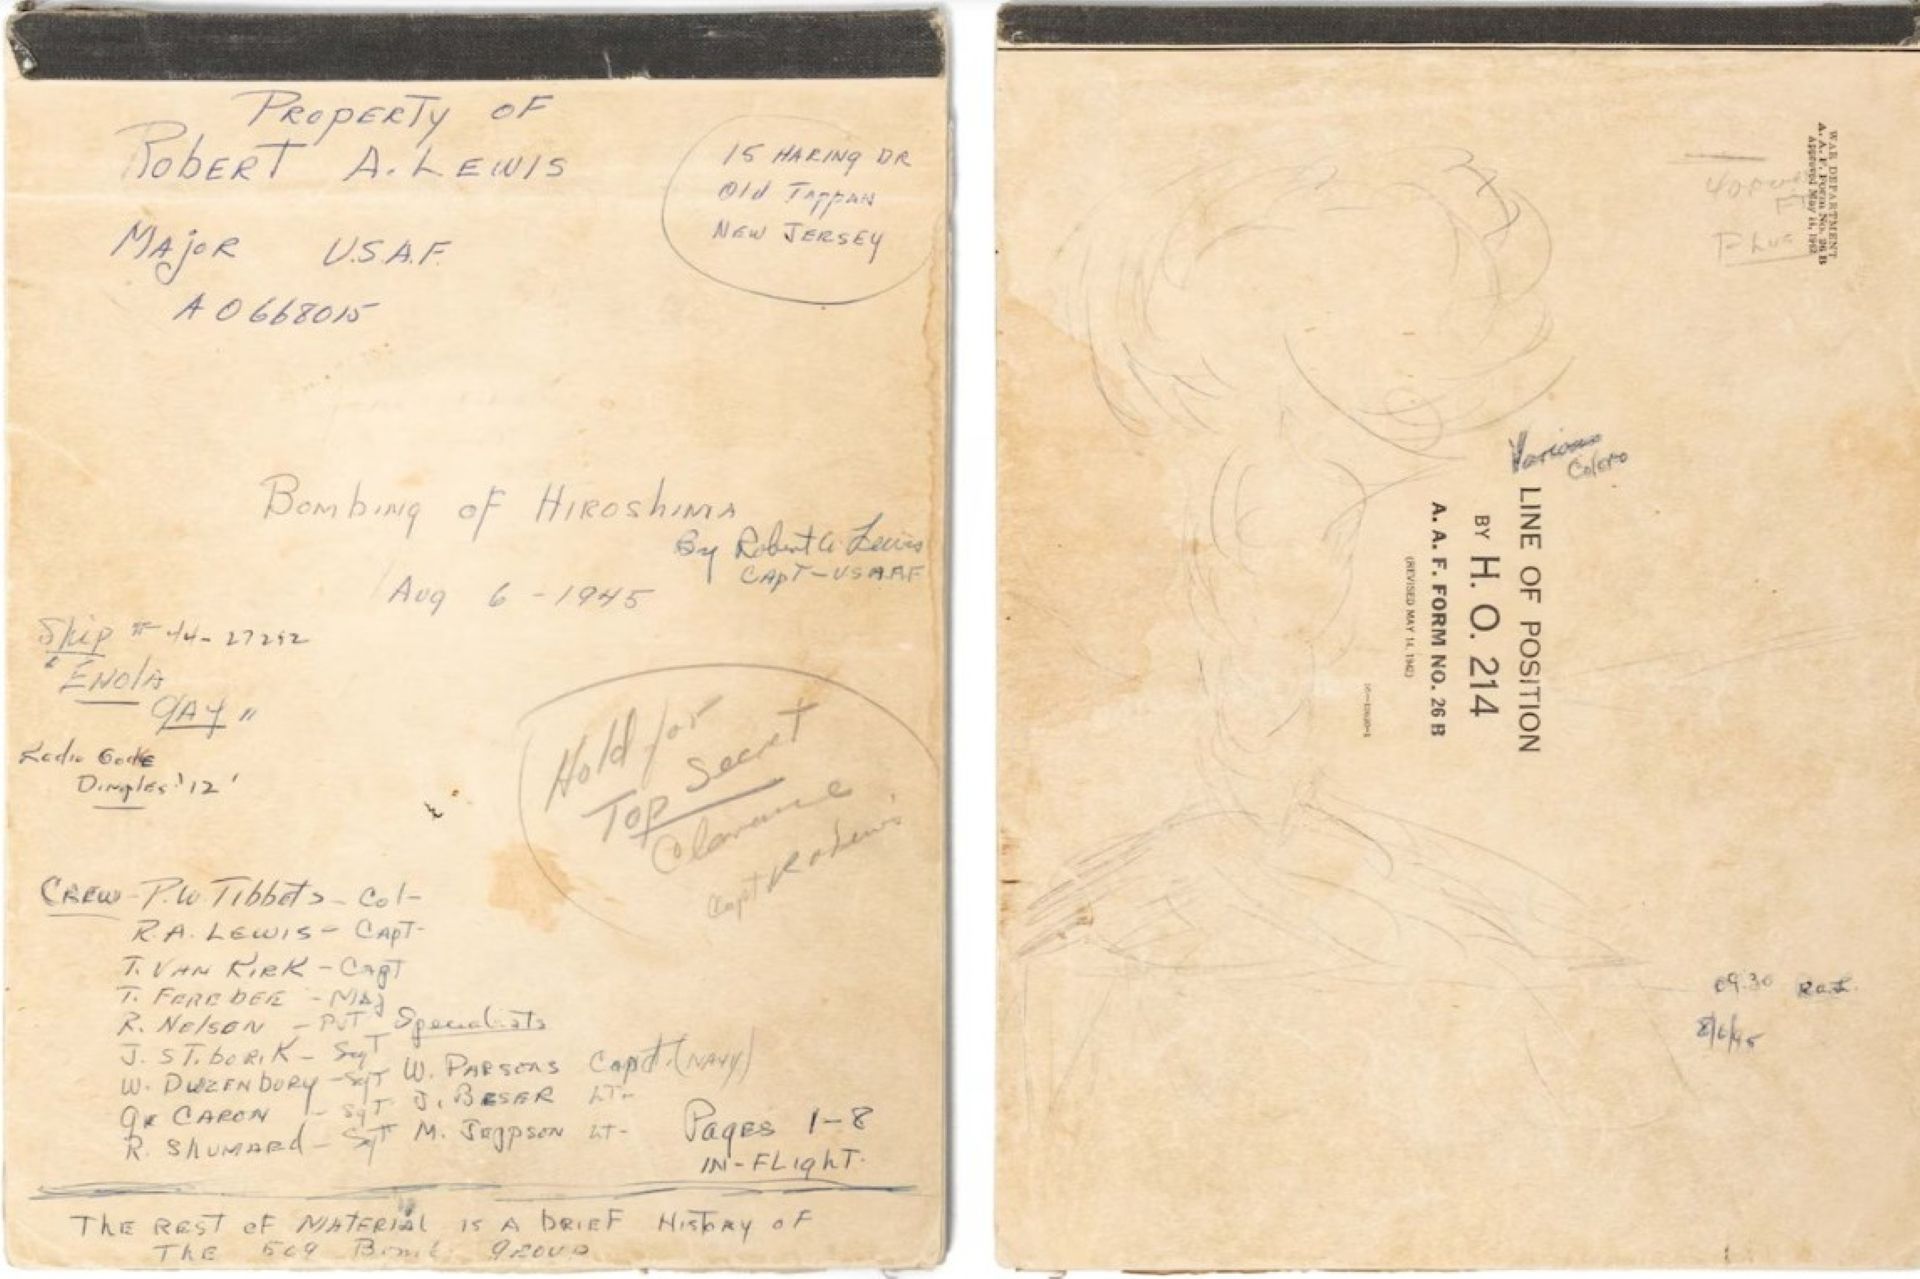 PROPERTY OF
ROBERT A. LEWIS
MAJOR U.S.A.F.
AO668015
15 HARING DR
Old Tappan
NEW JERSEY
BOMBING OF HIROSHIMA
By Robert A. Lewis
CAPT-USAAF
Aug 6-1945
Ship # 44-27292
"ENOLA
GAY"
Radio Code
Dimples '12'
Hold for
Top Secret
Clearance
Capt R A Lewis
CREW - P.W TIBBETS - Col-
R.A. LEWIS - CAPT-
T. VAN KIRK - Capt
T. FEREBEE - MAJ
R. NELSON - PVT
J. STIBORIK - Sgt
W. DUZENBURY - Sgt
G. CARON - SgT
R. SHUMARD - SgT
Specialists
W. PARSONS Capt. (NAVY)
J. BESER LT-
M. JEPPSON LT-
PAGES 1-8
IN-FLIGHT.
THE REST OF MATERIAL IS A BRIEF HISTORY OF
THE 509 Bomb GROUP
WAR DEPARTMENT
A. A. F. Form No. 26 B
Approved May 14, 1942
Plus
Various
Colors
LINE OF POSITION
BY H. O. 214
A. A. F. FORM NO. 26 B
(REVISED MAY 14, 1942)
09:30 R.a.L.
8/6/45